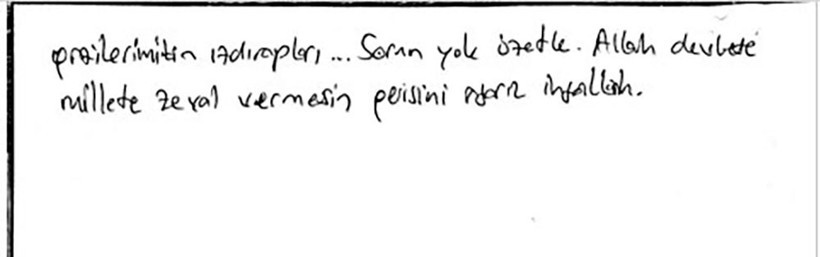 ızdırapları... Sorun yok özetle. Allah devlete
millete zeval vermesin gerisini aşarız inşallah.